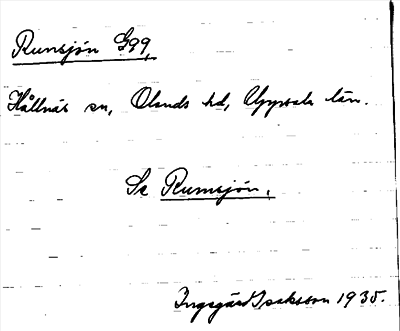 Runsjön G99,
Hållnäs sn, Olands hd, Uppsala län.
Se Rumsjön,
Ingegärd Isaksson 1935.